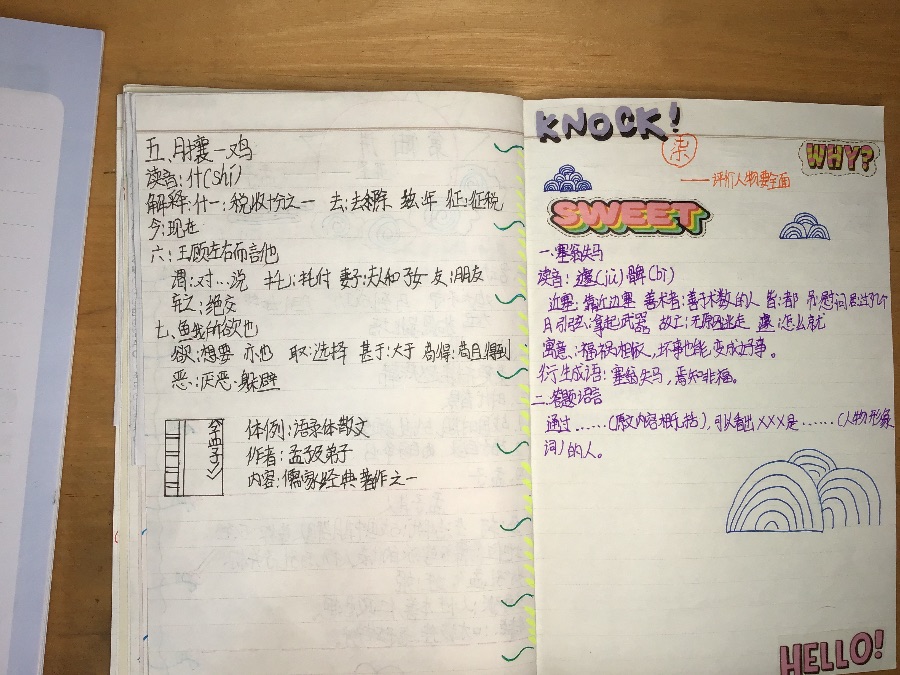 五、月攘一鸡
读音:什(shí)
解释:什一:税收十分之一 去:去除 年 征:征税
今:现在
六:王顾左右而言他
谓:对…说 托:托付 妻子:夫人和子女 友:朋友
弃之:绝交
七、鱼我所欲也
欲:想要 亦:也 取:选择 甚于:大于 苟得:苟且得到
恶:厌恶 躲避
《孟子》
体例:语录体散文
作者:孟子及弟子
内容:儒家经典著作之一
KNOCK!
柒
WHY?
——评价人物要全面
SWEET
一.塞翁失马
读音:遽(jù)
近塞:靠近边塞 善术者:善于术数的人 皆:都 吊:慰问 居:过了几个
月 引弦:拿起武器 故亡:无原因逃走 遽:怎么就
寓意:福祸相依,坏事也能变成好事。
衍生成语:塞翁失马,焉知非福。
二.答题语言
通过……(原文内容概括),可以看出XXX是……(人物形象
词)的人。
HELLO!